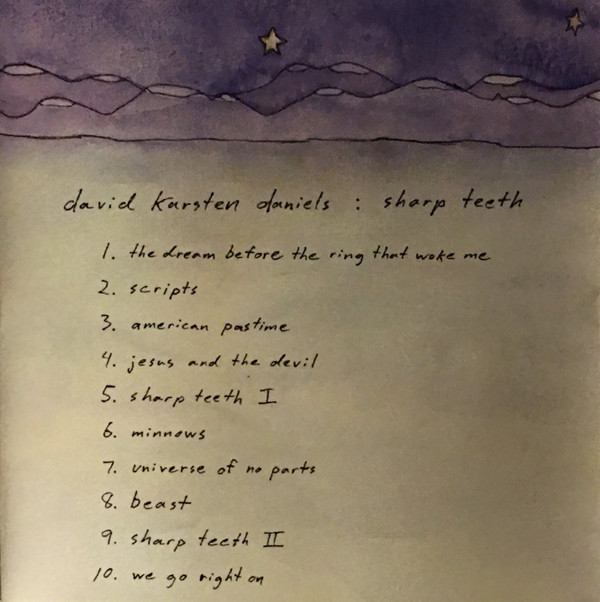 david karsten daniels : sharp teeth
1. the dream before the ring that woke me
2. scripts
3. american pastime
4. jesus and the devil
5. sharp teeth I
6. minnows
7. universe of no parts
8. beast
9. sharp teeth II
10. we go right on